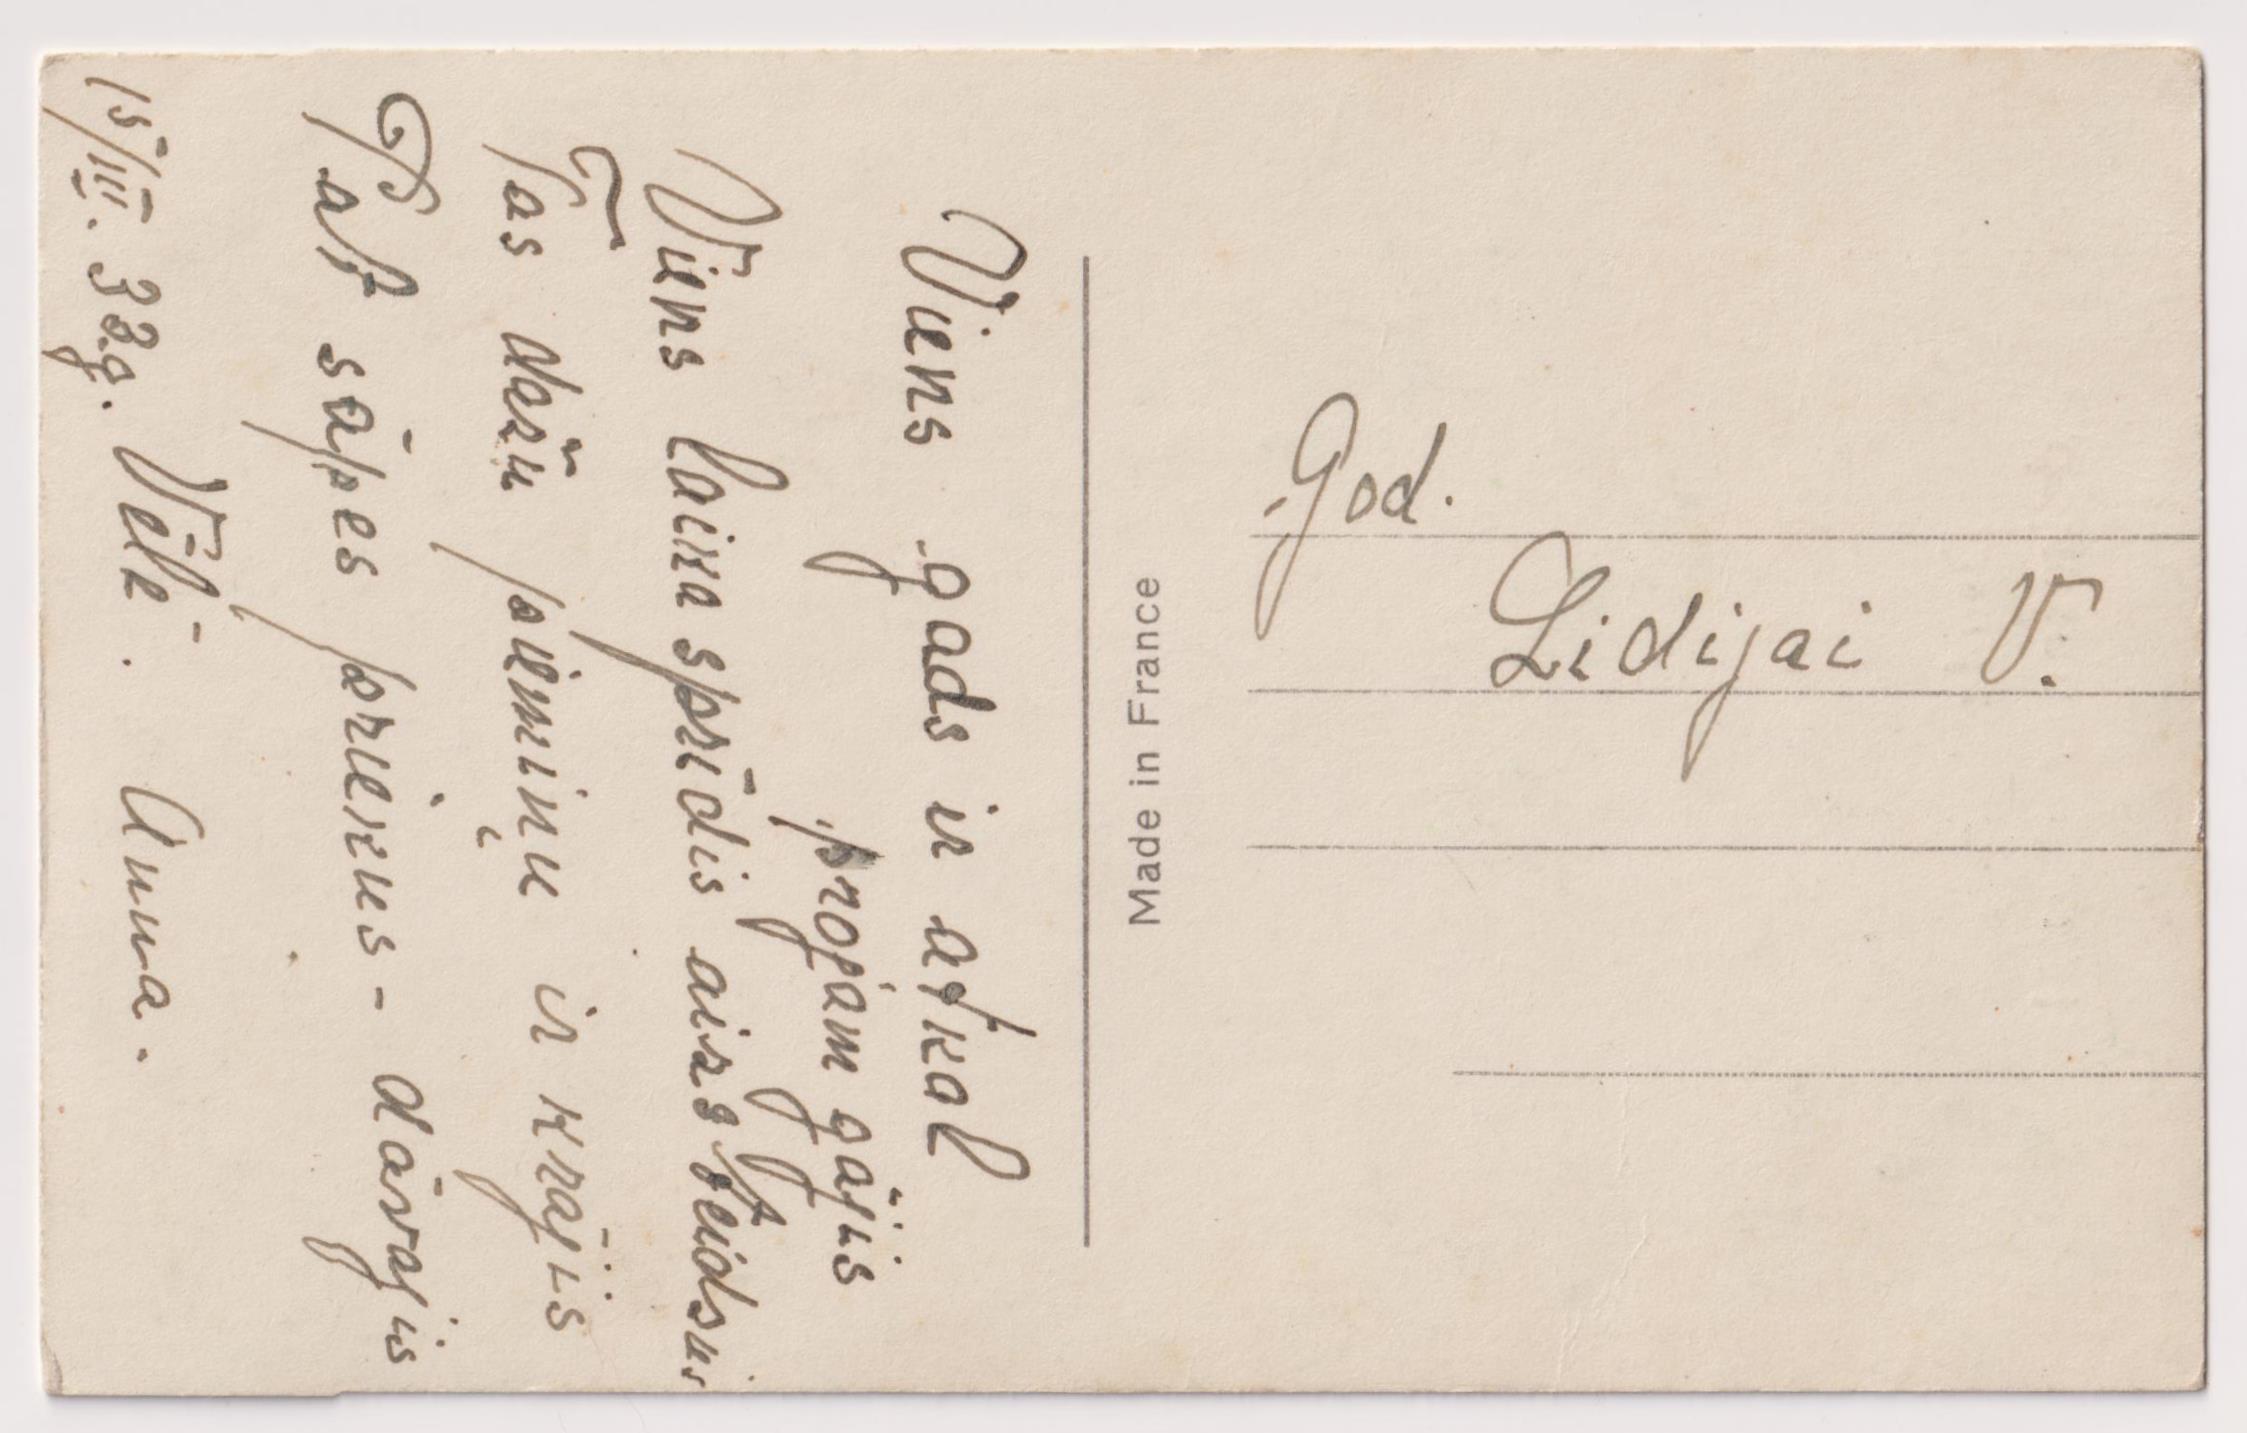 Viens gads ir atkal
projam gājis
Viens laika sprīdis aizsteidsies
Tas dažu piemiņu ir krājis
Pat sāpes priekus - dāvajis
15/III. 33g. Vēlē. Anna.
Made in France
God.
Lidijai V.